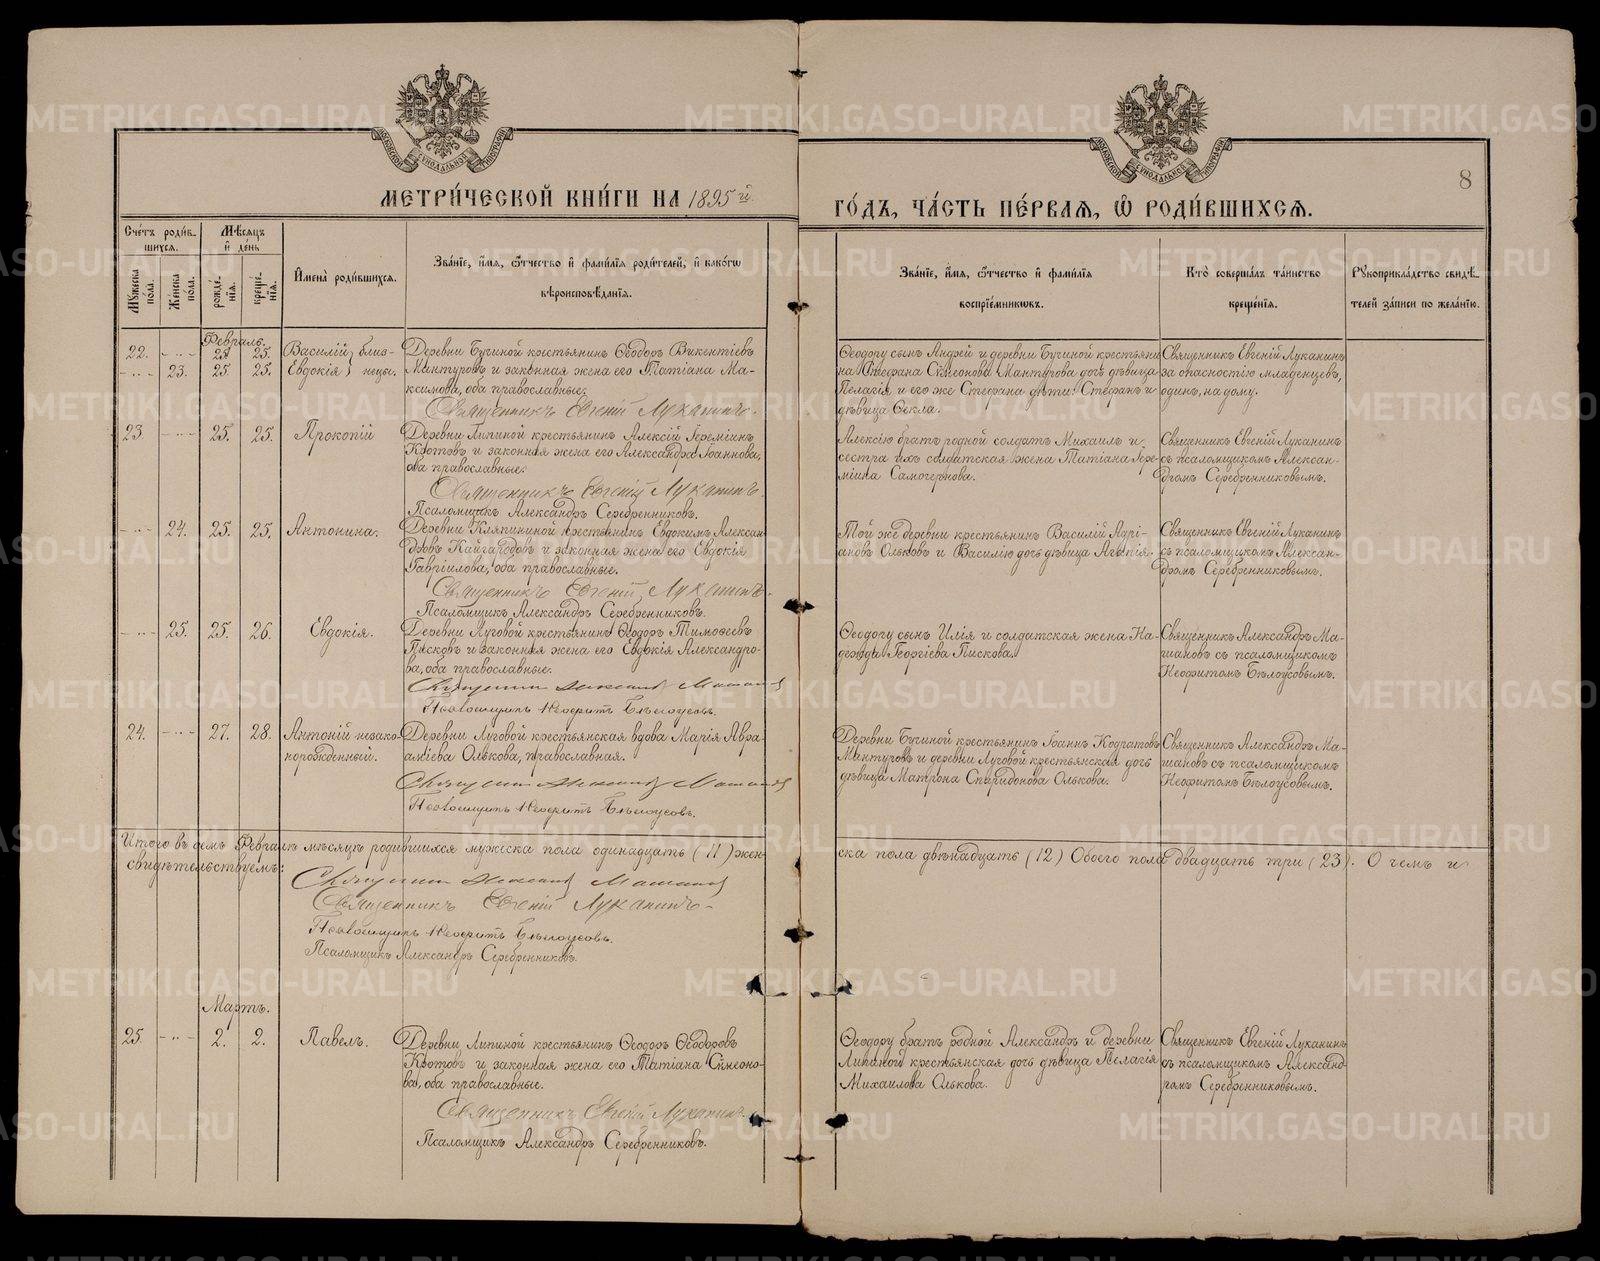 МЕТРИ́ЧЕСКОЙ КНИ́ГИ НА 1895й
ГО́ДЪ, ЧА́СТЬ ПЕ́РВАЯ, Ѽ РОДИ́ВШИХСЯ.
8
Сче́тъ роди́в-
шихся.
Мꙋжеска по́ла.
Же́нска по́ла.
Мѣ́сяцъ и҆ де́нь
рожде́-
нїя.
креще́-
нїя.
И҆мена̀ роди́вшихся.
Зва́нїе, и҆́мя, ѻ҆́тчество и҆ фами́лїя роди́телей, и҆ како́гѡ
вѣроисповѣ́данїя.
Зва́нїе, и҆́мя, ѻ҆́тчество и҆ фами́лїя
воспрїе́мникѡвъ.
Кто̀ соверша́лъ та́инство
креще́нїя.
Рꙋкоприкла́дство свидѣ́-
телей за́писи по жела́нїю.
Февраль.
22. -"- 25. Василій близ-
-"- 23. 25. 25. Евдокія нецы.
Деревни Бучиной крестьянинъ Ѳеодоръ Викентіевъ
Мантуровъ и законная жена его Татіана Ма-
ксимова, оба православные.
Священникъ Евгеній Луканинъ.
Ѳеодору сынъ Андрей и деревни Бучиной крестьяни-
на Стефана Сѵмеонова Мантурова дочь дѣвица
Пелагія и его же Стефана дѣти: Стефанъ и
дѣвица Ѳекла.
Священникъ Евгеній Луканинъ
за опасностію младенцевъ,
одинъ, на дому.
23. -"- 25. 25. Прокопій
Деревни Липиной крестьянинъ Алексій Іереміинъ
Кротовъ и законная жена его Александра Іоаннова,
оба православные.
Священникъ Евгеній Луканинъ.
Псаломщикъ Александръ Серебренниковъ.
Алексію братъ родной солдатъ Михаилъ и
сестра ихъ солдатская жена Татіана Іере-
міина
Священникъ Евгеній Луканинъ
съ псаломщикомъ Алексан-
дромъ Серебренниковымъ.
-"- 24. 25. 25. Антонина.
Деревни Кляпининой крестьянинъ Евдокимъ Алексан-
дровъ Кайгородовъ и законная жена его Евдокія
Гавріилова, оба православные.
Священникъ Евгеній Луканинъ.
Псаломщикъ Александръ Серебренниковъ.
Той же деревни крестьянинъ Василій Адрі-
ановъ Ольковъ и Василію дочь дѣвица
Священникъ Евгеній Луканинъ
съ псаломщикомъ Алексан-
дромъ Серебренниковымъ.
-"- 25. 25. 26. Евдокія.
Деревни Луговой крестьянинъ Ѳеодоръ Тимоѳеевъ
Писковъ и законная жена его Евдокія Александро-
ва, оба православные.
Священникъ Александръ
Псаломщикъ Неофитъ Бѣлоусовъ.
Ѳеодору сынъ Илія и солдатская жена На-
дежда Георгіева Пискова.
Священникъ Александръ Ма-
шановъ съ псаломщикомъ
Неофитомъ Бѣлоусовымъ.
24. -"- 27. 28. Антоній незако-
норожденный.
Деревни Луговой крестьянская вдова Марія Авра-
аміева Олькова, православная.
Священникъ Александръ
Псаломщикъ Неофитъ Бѣлоусовъ.
Деревни Бучиной крестьянинъ Іоаннъ Кодратовъ
Мантуровъ и деревни Луговой крестьянская дочь
дѣвица Матрона Спиридонова Олькова.
Священникъ Александръ Ма-
шановъ съ псаломщикомъ
Неофитомъ Бѣлоусовымъ.
Итого въ семъ Февралѣ мѣсяцѣ родившихся мужеска пола одинадцать (11) жен-
ска пола двѣнадцать (12) Обоего пола двадцать три (23). О чемъ и
свидѣтельствуемъ:
Священникъ Александръ
Священникъ Евгеній Луканинъ.
Псаломщикъ Неофитъ Бѣлоусовъ.
Псаломщикъ Александръ Серебренниковъ.
Мартъ.
25. -"- 2. 2. Павелъ.
Деревни Липиной крестьянинъ Ѳеодоръ Ѳеодоровъ
Кротовъ и законная жена его Татіана Сѵмеоно-
ва, оба православные.
Священникъ Евгеній Луканинъ.
Псаломщикъ Александръ Серебренниковъ.
Ѳеодору братъ родной Александръ и деревни
Липиной крестьянская дочь дѣвица Пелагія
Михаилова Олькова.
Священникъ Евгеній Луканинъ
съ псаломщикомъ Александ-
ромъ Серебренниковымъ.
METRIKI.GASO-URAL.RU